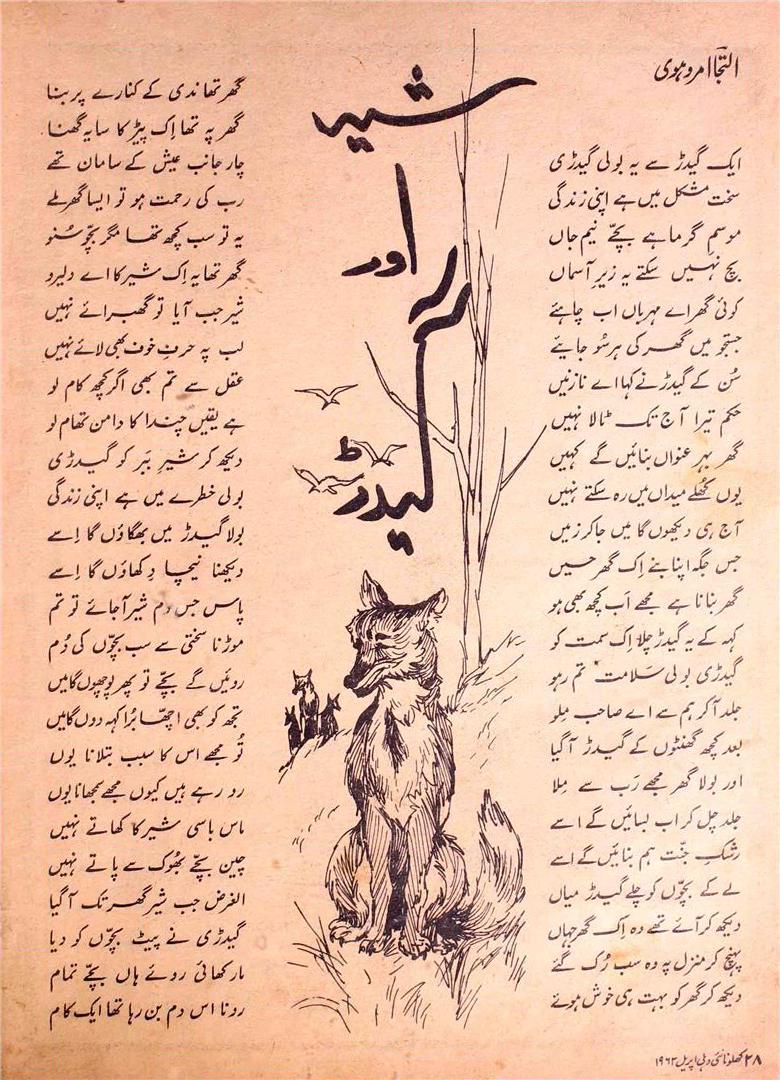 التجا امروہوی
شیر
اور
گیدڑ
ایک گیدڑ سے یہ بولی گیدڑی
سخت مشکل میں ہے اپنی زندگی
موسمِ گرما ہے بچّے نیم جاں
بچ نہیں سکتے یہ زیرِ آسماں
کوئی گھر اے مہرباں اب چاہئے
جستجو میں گھر کی ہر سُو جایئے
سُن کے گیدڑ نے کہا اے نازنیں
حکم تیرا آج تک ٹالا نہیں
گھر بہر عنواں بنائیں گے کہیں
یوں کُھلے میداں میں رہ سکتے نہیں
آج ہی دیکھوں گا میں جاکر زمیں
جس جگہ اپنا بنے اِک گھر حسیں
گھر بنانا ہے مجھے اَب کچھ بھی ہو
کہہ کے یہ گیدڑ چلا اِک سمت کو
گیدڑی بولی سَلامت تم رہو
جلد آکر ہم سے اے صاحب مِلو
بعد کچھ گھنٹوں کے گیدڑ آگیا
اور بولا گھر مجھے رَب سے مِلا
جلد چل کر اب بسائیں گے اسے
رشکِ جنّت ہم بنائیں گے اسے
لے کے بچّوں کو چلے گیدڑ میاں
دیکھ کر آئے تھے وہ اِک گھر جہاں
پہنچ کر منزل پہ وہ سب رُک گئے
دیکھ کر گھر کو بہت ہی خوش ہوئے
گھر تھا ندی کے کنارے پر بنا
گھر پہ تھا اِک پیڑ کا سایہ گھنا
چار جانب عیش کے سامان تھے
رب کی رحمت ہو تو ایسا گھر ملے
یہ تو سب کچھ تھا مگر بچّو سُنو
گھر تھا یہ اِک شیر کا اے دلیرو
شیر جب آیا تو گھبرائے نہیں
لب پہ حرفِ خوف بھی لائے نہیں
عقل سے تم بھی اگر کچھ کام لو
ہے یقیں چندا کا دامن تھام لو
دیکھ کر شیرِ بَبر کو گیدڑی
بولی خطرے میں ہے اپنی زندگی
بولا گیدڑ میں بھگاؤں گا اِسے
دیکھنا نیچا دِکھاؤں گا اِسے
پاس جس دم شیر آجائے تو تم
موڑنا سختی سے سب بچّوں کی دُم
روئیں گے بچّے تو پھر پوچھوں گا میں
تجھ کو بھی اچھّا بُرا کہہ دوں گا میں
تُو مجھے اس کا سبب بتلانا یوں
رو رہے ہیں کیوں مجھے سمجھانا یوں
ماس باسی شیر کا کھاتے نہیں
چین بچّے بُھوک سے پاتے نہیں
الغرض جب شیر گھر تک آگیا
گیدڑی نے پیٹ بچّوں کو دیا
مار کھائی روئے ہاں بچّے تمام
رونا اس دم بن رہا تھا ایک کام
۲۸ کھلونا نئی دہلی اپریل ۱۹۶۳